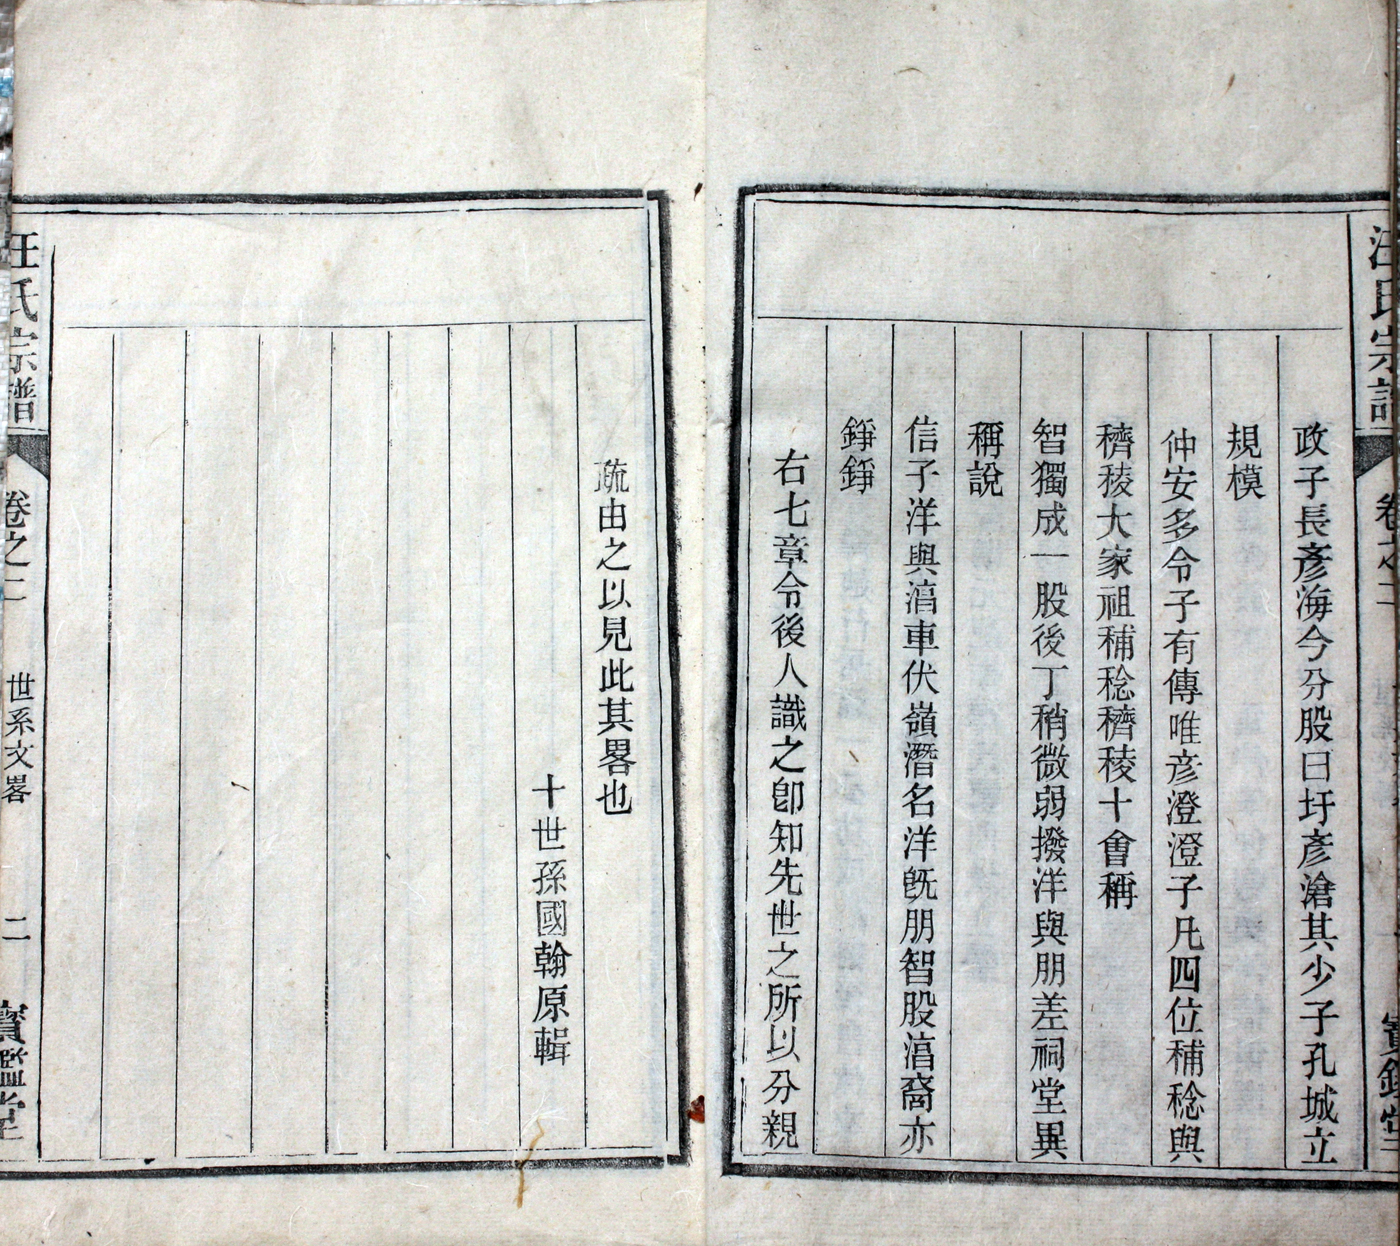 汪氏宗譜
卷之二
寶鑑堂
政子長彥海今分股曰圩彥滄其少子孔城立
規模
仲安多令子有傳唯彥澄澄子凡四位補稔與
穧稜大家祖補稔穧稜十會稱
智獨成一股後丁稍微弱撥洋與朋差祠堂異
稱說
信子洋與淐車伏嶺潛名洋旣朋智股淐裔亦
錚錚
右七章令後人識之卽知先世之所以分親
疏由之以見此其畧也
十世孫國翰原輯
汪氏宗譜
卷之二
世系文畧
二
寶鑑堂